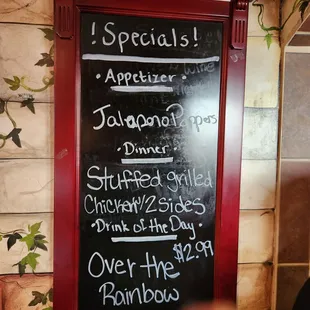 !Specials!
• Appetizer •
Jalapeno Poppers
• Dinner •
Stuffed grilled
Chicken 1/2 sides
• Drink of the Day •
$2.99
Over the
Rainbow